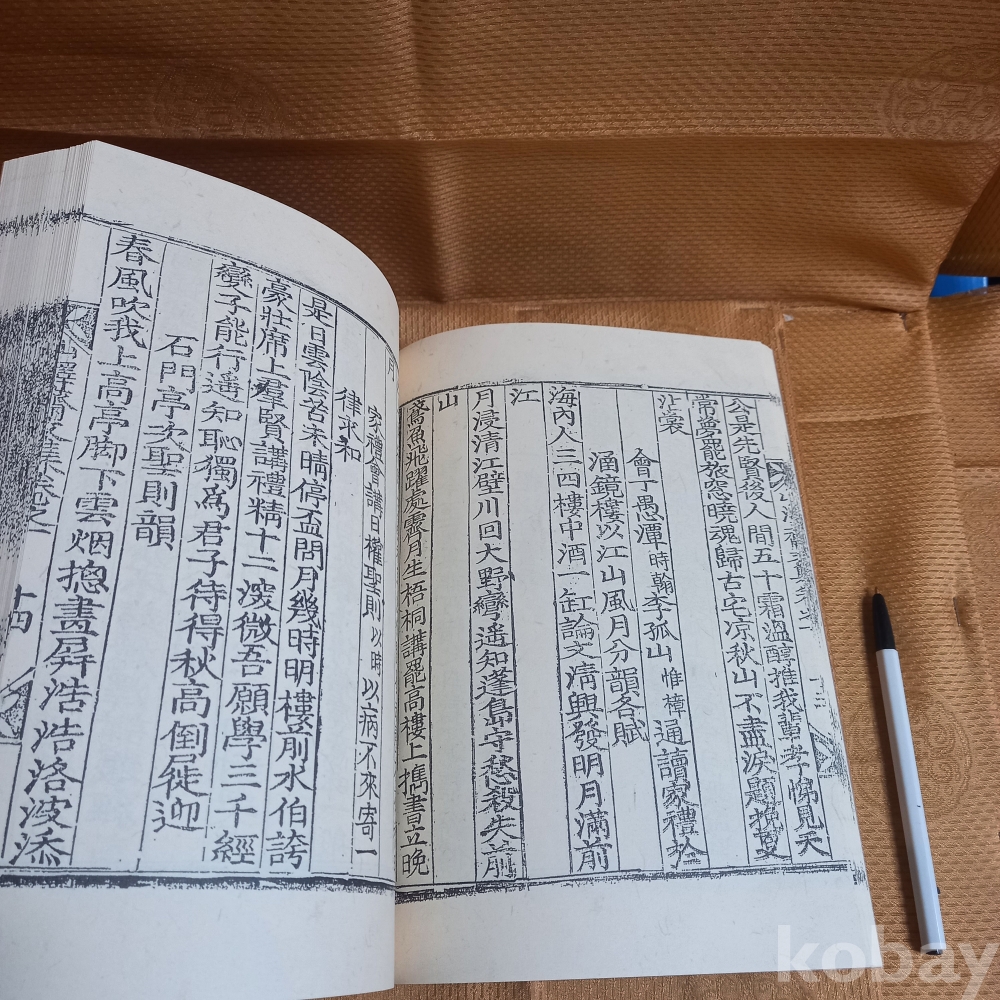 公是先賢後人間五十霜溫醇推我輩孝悌見天
常夢罷旅窓曉魂歸古宅凉秋山不盡淚題挽更
沾裳
會丁愚潭時翰李孤山惟樟通讀家禮於
涵鏡樓以江山風月分韻各賦
海內人三四樓中酒一缸論文淸興發明月滿前
江
月浸清江壁川回大野彎遥知蓬島守愁殺失前
山
鳶魚飛躍處霽月生梧桐講罷高樓上携書立晩
月
家禮會講日權聖則以時以病不來寄一
律求和
是日雲陰苦未晴停盃問月幾時明樓前水伯誇
豪壯席上羣賢講禮精十二淡微吾願學三千經
變子能行遥知恥獨爲君子待得秋高倒屣迎
石門亭次聖則韻
春風吹我上高亭脚下雲烟摠畫屛浩浩洛波添
十四
kobay